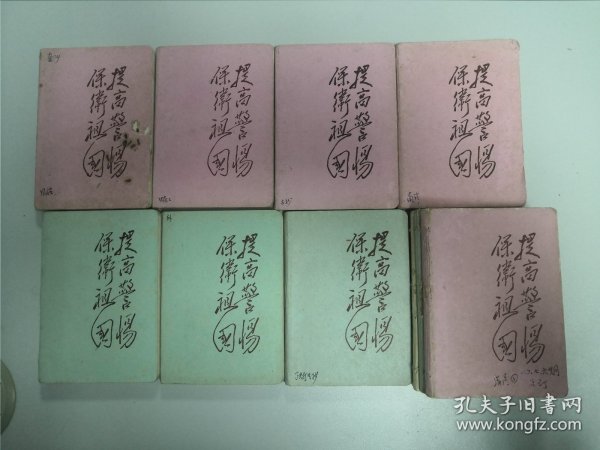 提高警惕
保衛祖國
提高警惕
保衛祖國
提高警惕
保衛祖國
提高警惕
保衛祖國
提高警惕
保衛祖國
提高警惕
保衛祖國
提高警惕
保衛祖國
提高警惕
保衛祖國
孔夫子旧书网
www.kongfz.com